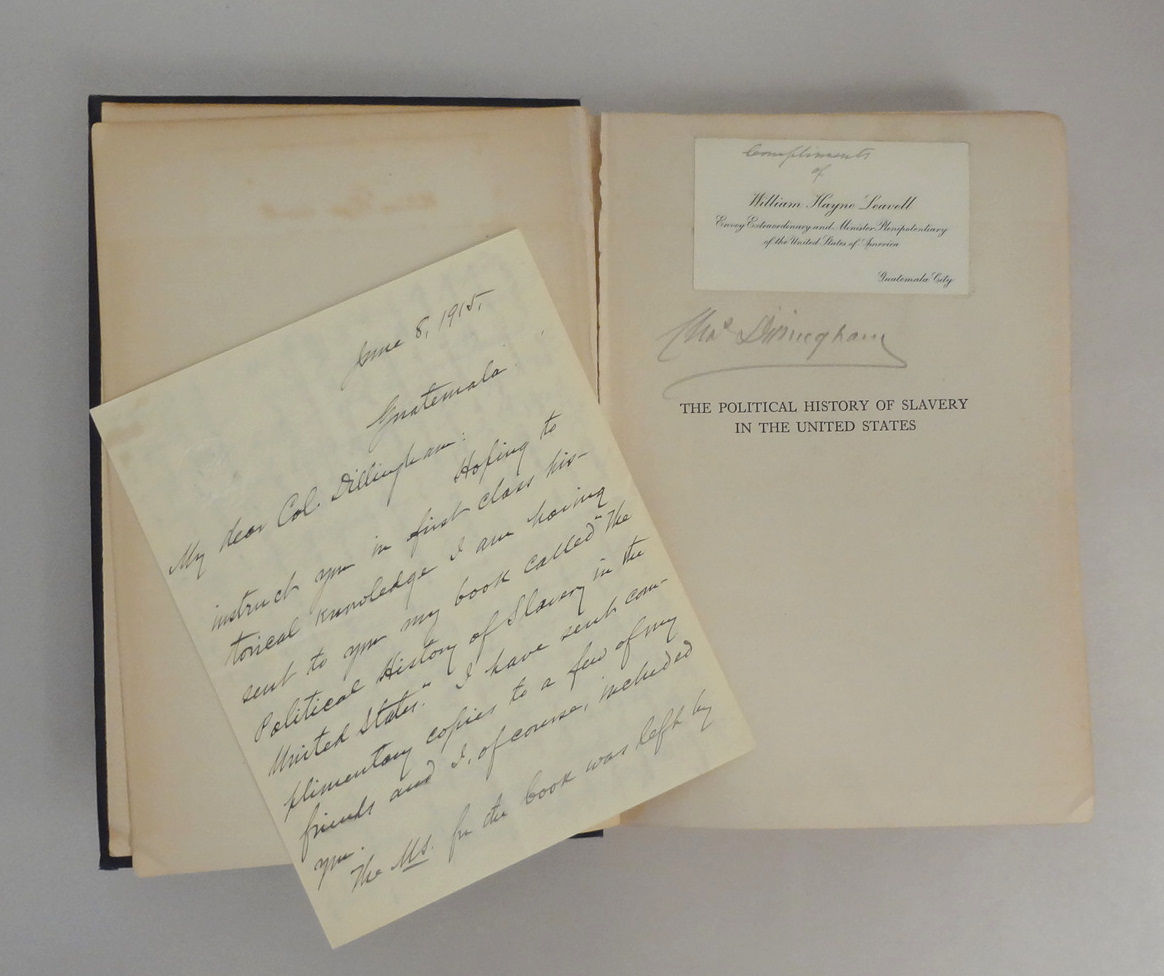 June 8, 1915.
Guatemala.
My dear Col. Dillingham:
Hoping to
instruct you in first class his-
torical knowledge I am having
sent to you my book called "The
Political History of Slavery in the
United States." I have sent com-
plimentary copies to a few of my
friends and I, of course, included
you.
The Ms. for the book was left by
Compliments
of
William Hayne Leavell
Envoy Extraordinary and Minister Plenipotentiary
of the United States of America
Guatemala City
Chas Dillingham
THE POLITICAL HISTORY OF SLAVERY
IN THE UNITED STATES